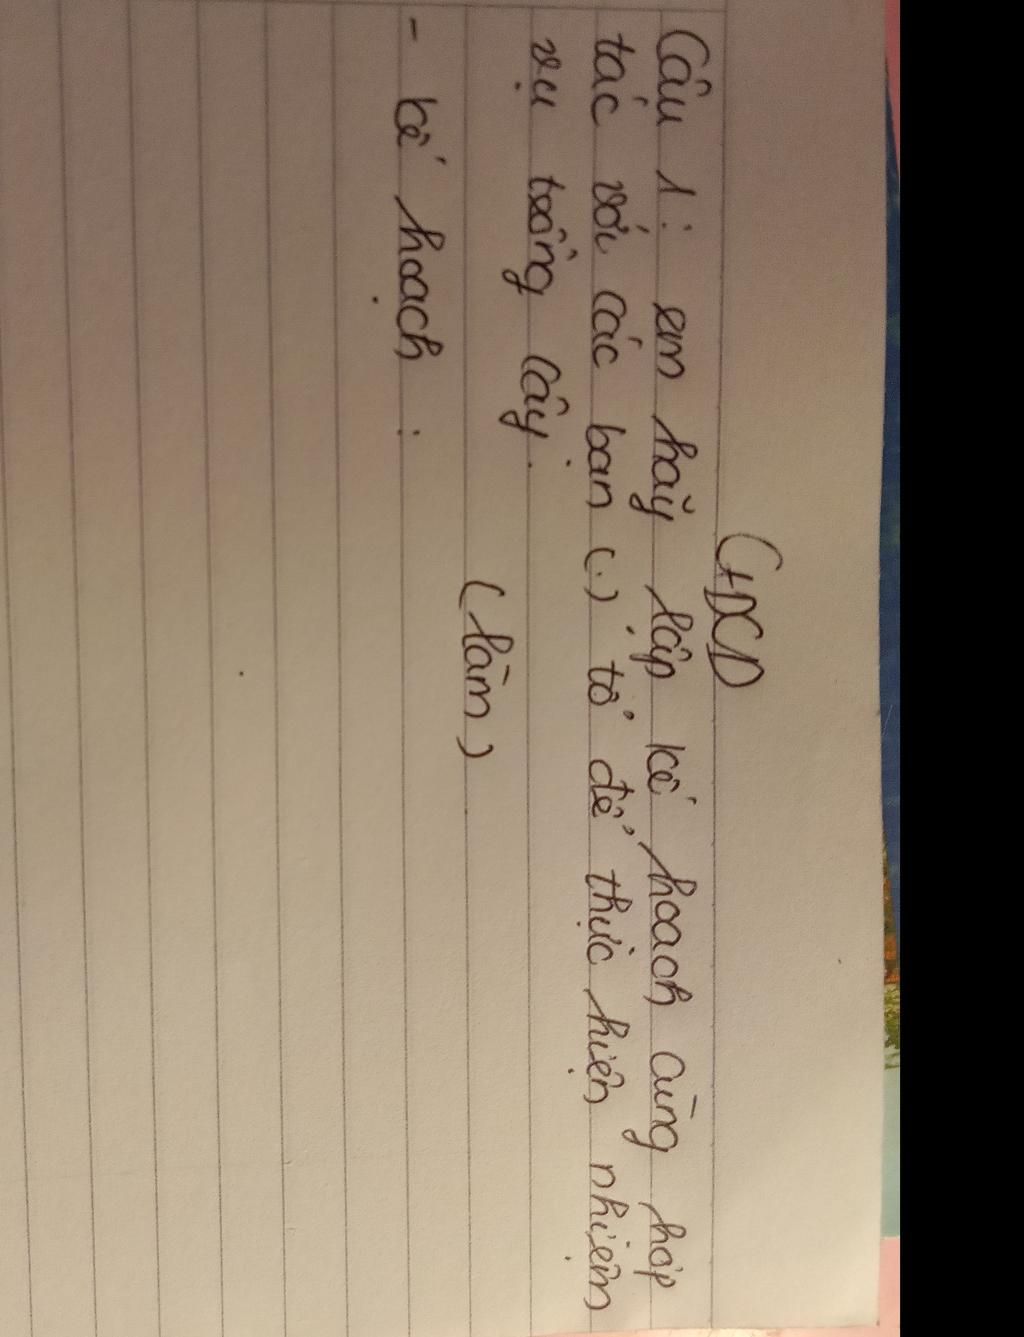 GDCD
Câu 1: em hãy lập kế hoạch cùng hợp
tác với các bạn (.) tổ để thực hiện nhiệm
vụ trồng cây.
(làm)
- kế hoạch :